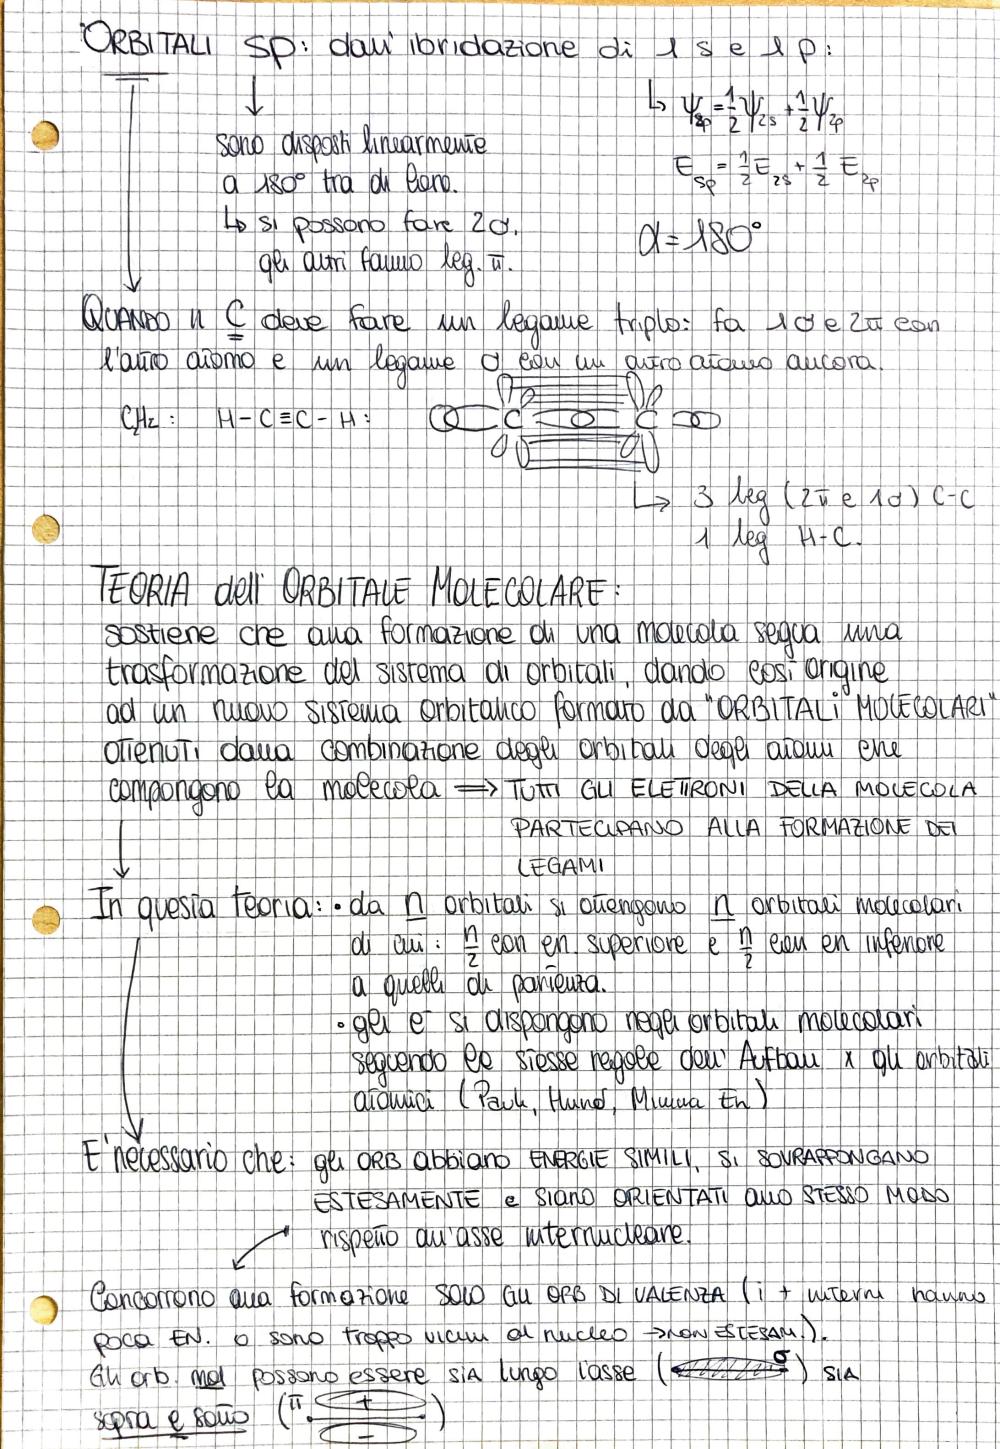 ORBITALI sp: dall'ibridazione di 1 s e 1 p:
↳ Ψsp = 1/2 Ψ2s + 1/2 Ψ2p
sono disposti linearmente
a 180° tra di loro.
Esp = 1/2 E2s + 1/2 E2p
↳ si possono fare 2σ,
gli altri fanno leg. π.
α = 180°
QUANDO il C deve fare un legame triplo: fa 1σ e 2π con
l'altro atomo e un legame σ con un altro atomo ancora.
C2H2: H-C≡C-H: C C
↳ 3 leg (2π e 1σ) C-C
1 leg H-C.
TEORIA dell'ORBITALE MOLECOLARE:
sostiene che alla formazione di una molecola segua una
trasformazione del sistema di orbitali, dando così origine
ad un nuovo sistema orbitalico formato da "ORBITALI MOLECOLARI"
ottenuti dalla combinazione degli orbitali degli atomi che
compongono la molecola ⟹ TUTTI GLI ELETTRONI DELLA MOLECOLA
PARTECIPANO ALLA FORMAZIONE DEI
LEGAMI
In questa teoria: • da n orbitali si ottengono n orbitali molecolari
di cui: n/2 con en. superiore e n/2 con en inferiore
a quelli di partenza.
• gli e⁻ si dispongono negli orbitali molecolari
seguendo le stesse regole dell'Aufbau x gli orbitali
atomici (Pauli, Hund, Minima En)
E' necessario che: gli ORB abbiano ENERGIE SIMILI, SI SOVRAPPONGANO
ESTESAMENTE e SIANO ORIENTATI allo STESSO MODO
rispetto all'asse internucleare.
Concorrono alla formazione SOLO GLI ORB DI VALENZA (i + interni hanno
poca EN. o sono troppo vicini al nucleo → NON ESTESAM.).
Gli orb. mol possono essere SIA lungo l'asse (σ) SIA
sopra e sotto (π + -)